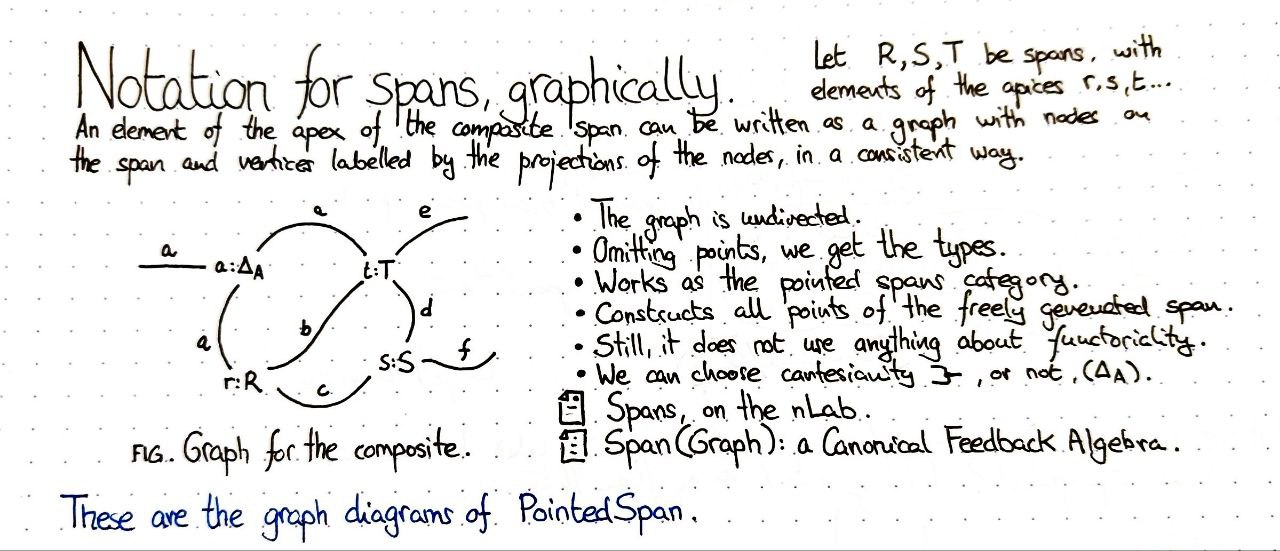 Notation for spans, graphically.
Let R,S,T be spans, with
elements of the apices r,s,t...
An element of the apex of the composite span can be written as a graph with nodes on
the span and vertices labelled by the projections of the nodes, in a consistent way.
a
e
a
a:ΔA
t:T
a
b
d
r:R
c
s:S
f
FIG. Graph for the composite.
• The graph is undirected.
• Omitting points, we get the types.
• Works as the pointed spans category.
• Constructs all points of the freely generated span.
• Still, it does not use anything about functoriality.
• We can choose cartesianity, or not, (ΔA).
Spans, on the nLab.
Span(Graph): a Canonical Feedback Algebra.
These are the graph diagrams of PointedSpan.